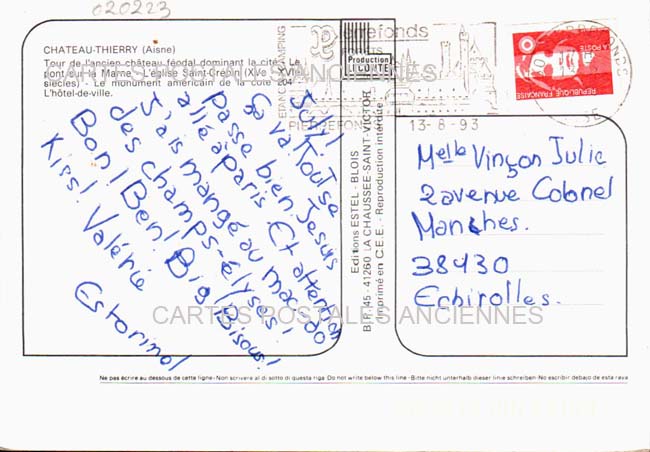 020223
CHATEAU-THIERRY (Aisne)
Tour de l'ancien château féodal dominant la cité - Le
pont sur la Marne - L'église Saint-Crépin (XVe - XVIe
siècles) - Le monument américain de la cote 204 -
L'hôtel-de-ville.
Salut
Ça va. Toutse
passe bien. Jesuis
allé à Paris. Et attention
J'ais mangé au macdo
des champs-élysés!
Bon! Ben! Big Bisous!
Kiss! Valérie
Estorino!
Production
LECONTE
Editions ESTEL - BLOIS
B.P. 45 - 41260 LA CHAUSSEE-SAINT-VICTOR
Imprimé en C.E.E. - Reproduction interdite
CAMPING
Pierrefonds
FORETS
PIERREFONDS
13-8-93
LA POSTE
REPUBLIQUE FRANCAISE
Melle Vinçon Julie
2 avenue Colonel
Manches.
38430
Echirolles.
CARTES POSTALES ANCIENNES
CARTES POSTALES ANCIENNES
Ne pas écrire au dessous de cette ligne - Non scrivere al di sotto di questa riga - Do not write below this line - Bitte nicht unterhalb dieser linie schreiben - No escribir debajo de esta raya